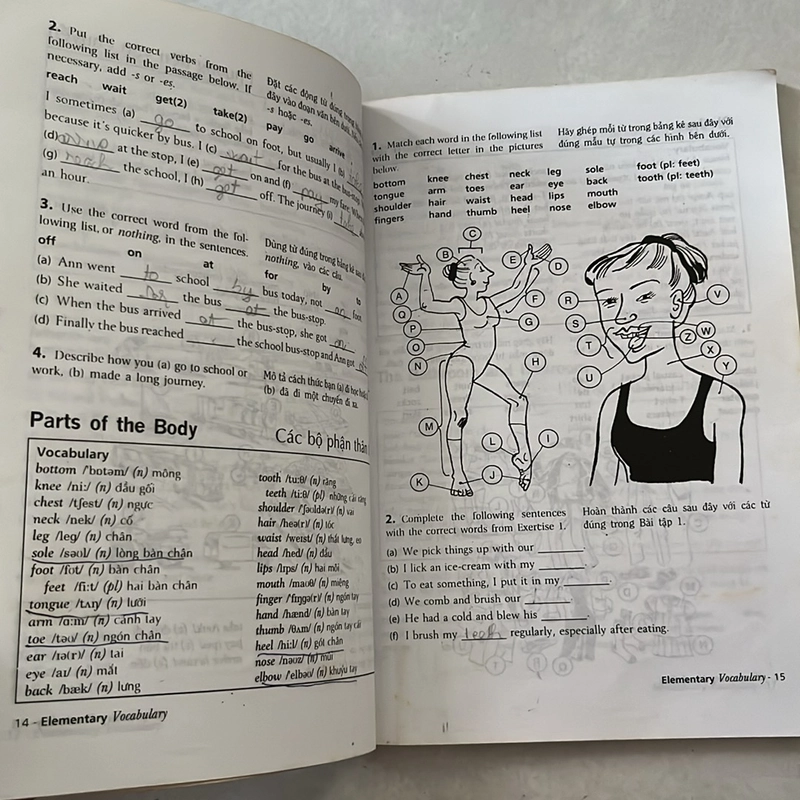 2. Put the correct verbs from the
following list in the passage below. If
necessary, add -s or -es.
Đặt các động từ đúng trong
đây vào đoạn văn bên dưới.
-s hoặc -es.
reach wait get(2) take(2) pay go arrive
I sometimes (a) go to school on foot, but usually I (b)
because it's quicker by bus. I (c) wait for the bus at the bus-stop
(d) at the stop, I (e) get on and (f) pay my fare. When
(g) reach the school, I (h) get off. The journey (i)
an hour.
3. Use the correct word from the fol-
lowing list, or nothing, in the sentences.
Dùng từ đúng trong bảng kê sau
nothing, vào các câu.
off on at for by to
(a) Ann went to school by bus today, not on foot
(b) She waited for the bus at the bus-stop.
(c) When the bus arrived at the bus-stop, she got on
(d) Finally the bus reached the school bus-stop and Ann got
4. Describe how you (a) go to school or
work, (b) made a long journey.
Mô tả cách thức bạn (a) đi học hoặc
(b) đã đi một chuyến đi xa.
Parts of the Body
Các bộ phận thân
Vocabulary
bottom /'bɒtəm/ (n) mông
knee /ni:/ (n) đầu gối
chest /tʃest/ (n) ngực
neck /nek/ (n) cổ
leg /leg/ (n) chân
sole /səʊl/ (n) lòng bàn chân
foot /fʊt/ (n) bàn chân
feet /fi:t/ (pl) hai bàn chân
tongue /tʌŋ/ (n) lưỡi
arm /ɑ:m/ (n) cánh tay
toe /təʊ/ (n) ngón chân
ear /ɪə(r)/ (n) tai
eye /aɪ/ (n) mắt
back /bæk/ (n) lưng
tooth /tu:θ/ (n) răng
teeth /ti:θ/ (pl) những cái răng
shoulder /'ʃəʊldə(r)/ (n) vai
hair /heə(r)/ (n) tóc
waist /weist/ (n) thắt lưng, eo
head /hed/ (n) đầu
lips /lɪps/ (n) hai môi
mouth /maʊθ/ (n) miệng
finger /'fɪŋgə(r)/ (n) ngón tay
hand /hænd/ (n) bàn tay
thumb /θʌm/ (n) ngón tay cái
heel /hi:l/ (n) gót chân
nose /nəʊz/ (n) mũi
elbow /'elbəʊ/ (n) khuỷu tay
14 - Elementary Vocabulary
1. Match each word in the following list
with the correct letter in the pictures
below.
Hãy ghép mỗi từ trong bảng kê sau đây với
đúng mẫu tự trong các hình bên dưới.
bottom knee chest neck leg sole foot (pl: feet)
tongue arm toes ear eye back tooth (pl: teeth)
shoulder hair waist head lips mouth
fingers hand thumb heel nose elbow
C
B E D
A F
Q
P G
O
N H
M
L I
K J
R V
S Z W
T X
U Y
2. Complete the following sentences
with the correct words from Exertise 1.
Hoàn thành các câu sau đây với các từ
đúng trong Bài tập 1.
(a) We pick things up with our ______.
(b) I lick an ice-cream with my ______.
(c) To eat something, I put it in my ______.
(d) We comb and brush our ______.
(e) He had a cold and blew his ______.
(f) I brush my teeth regularly, especially after eating.
Elementary Vocabulary - 15